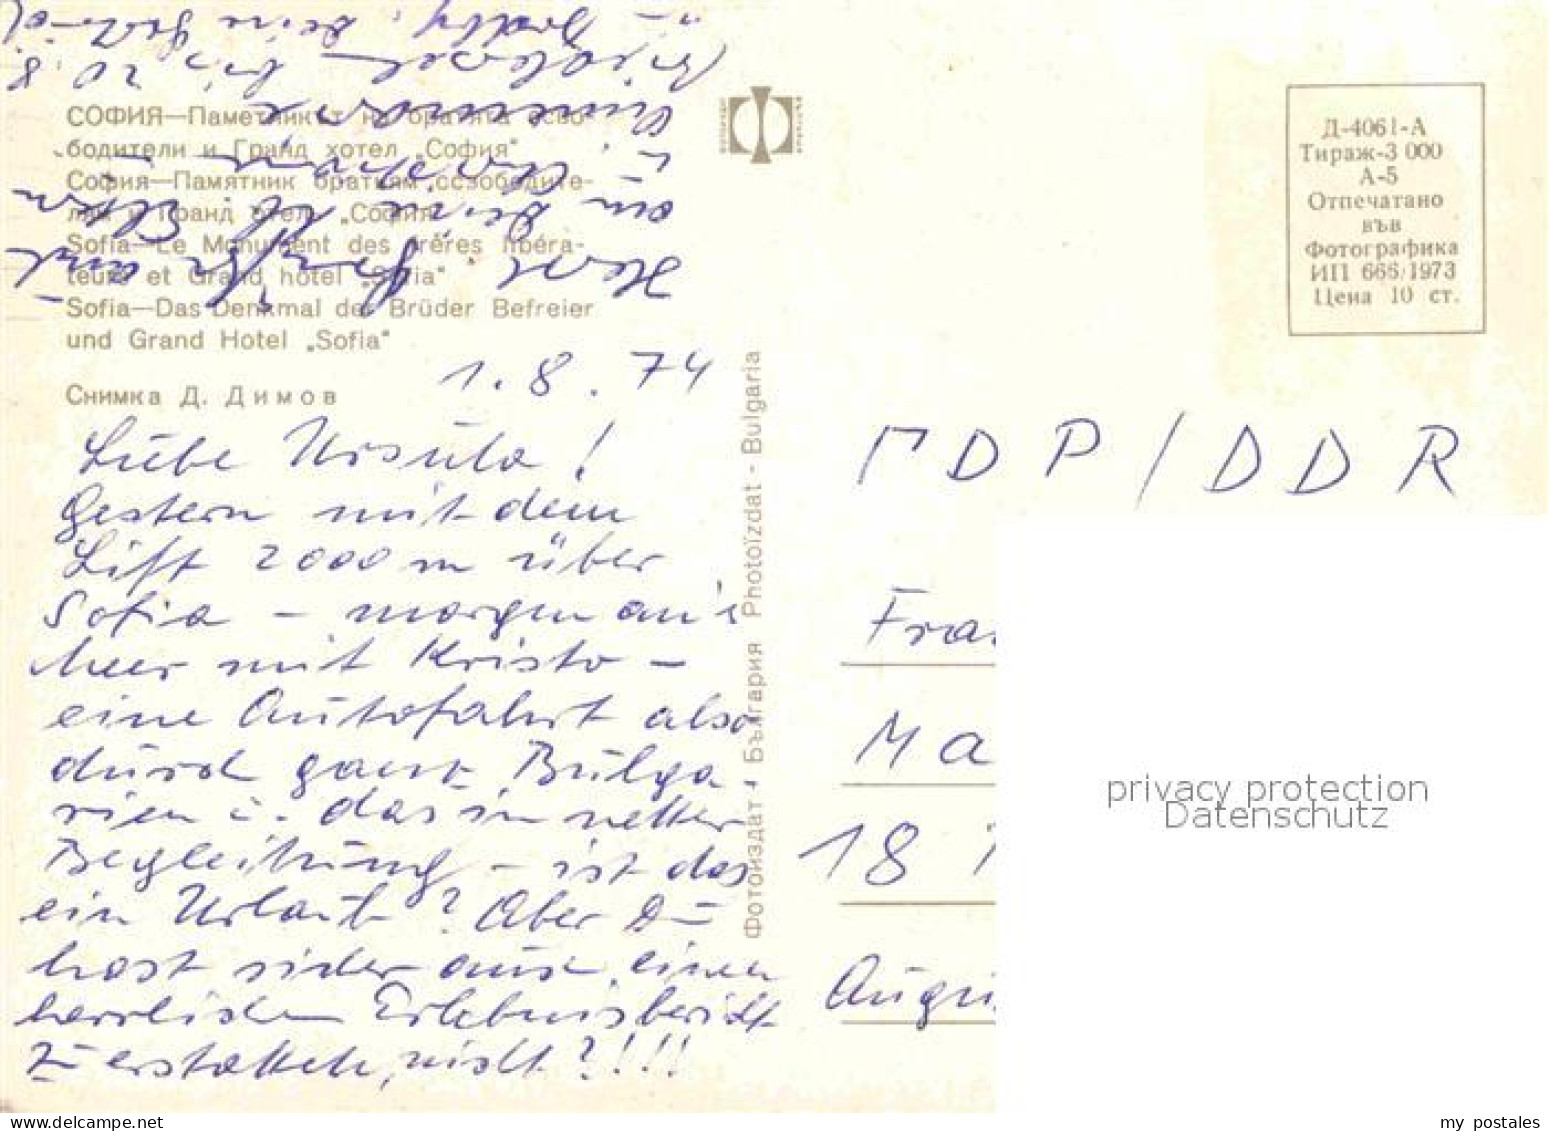 СОФИЯ—Паметникът на братята осво-
бодители и Гранд хотел „София“
София—Памятник братьям освободите-
лям и Гранд отель „София“
Sofia—Le Monument des frères libéra-
teurs et Grand hôtel „Sofia“
Sofia—Das Denkmal der Brüder Befreier
und Grand Hotel „Sofia“
Снимка Д. Димов
1.8.74
Liebe Ursula!
Gestern mit dem
Lift 2000 m über
Sofia – morgen an's
Meer mit Kristo –
eine Autofahrt also
durch ganz Bulga
rien u. das in netter
Begleitung – ist das
ein Urlaub? Aber Du
hast sicher auch einen
herrlichen Erlebnisbericht
zu erstatten, nicht?!!!!
Herzl. Grüße auch
an deine lb. Eltern
u.
bis 20.8.
dein
Фотоиздат • България Photoïzdat - Bulgaria
Д-4061-А
Тираж-3 000
А-5
Отпечатано
във
Фотографика
ИП 665/1973
Цена 10 ст.
ГDP/DDR
Fra
Ma
18
Augu
privacy protection
Datenschutz
my postales